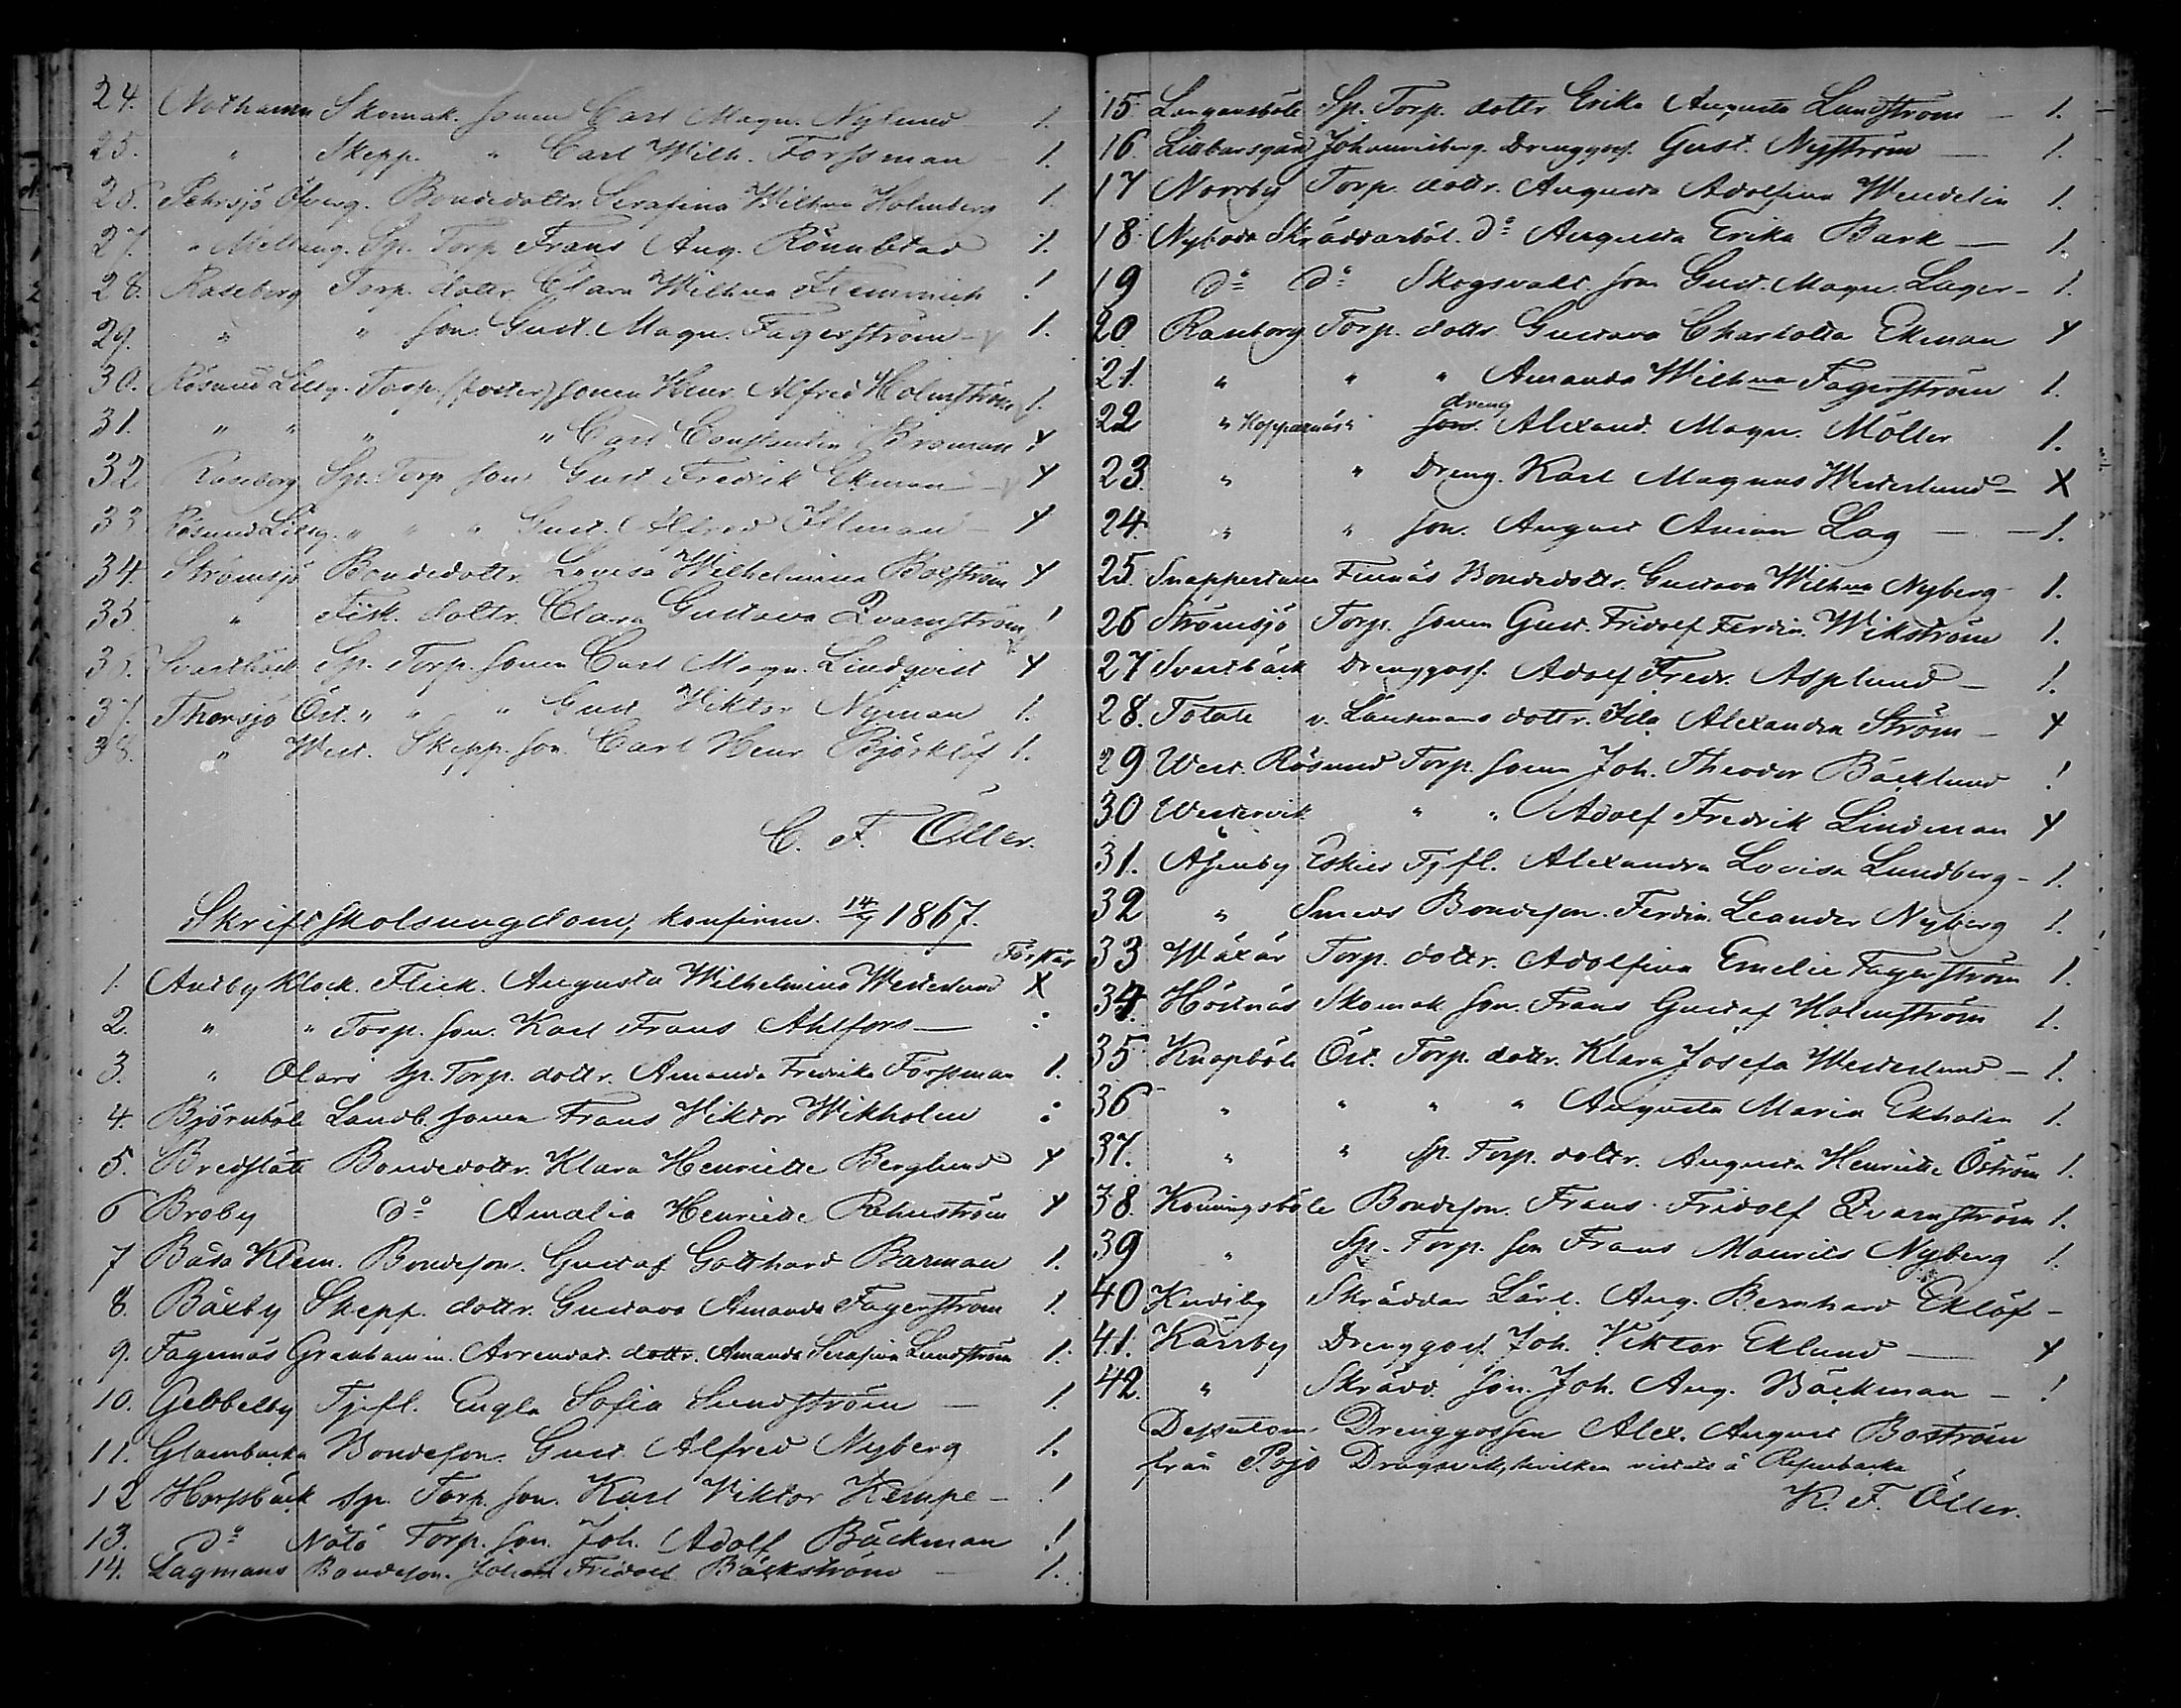 24. Nothamn Skomak. sonen Carl Magn. Nylund 1.
25. " Skepp. " Carl Wilh. Forssman 1.
26. Pehrsjö Öfverg. Bondedottr. Serafina Wilhna Holmberg 1.
27. " Mellang. Sp. Torp. Frans Aug. Rönnblad 1.
28. Raseborg Torp. dottr. Clara Wilhna Flemmich !
29. " " son. Gust. Magn. Fagerström 1.
30. Rösund Lillg. Torp. (foster) sonen Henr. Alfred Holmström 1.
31. " " " " Carl Constantin Broman Y
32 Raseborg Sp. Torp son Gust Fredrik Ekman Y
33 Rösund Lillg. " " " Gust. Alfred Y
34. Strömsjö Bondedottr. Lovisa Wilhelmina Y
35. " Fisk. dottr. Clara Gustava Qvarnström !
36. Svartbäck Sp. Torp. sonen Carl Magn. Lindqvist Y
37. Thorsjö Öst. " " " Gust Viktor Nyman 1.
38. " West. Skepp. son. Carl Henr Björklöf 1.
C. F. Öller.
Skriftskolsungdom, konfirm. 14/7 1867.
Förstår
1. Antby Klock. Flick. Augusta Wilhelmina Westerlund X
2. " " Torp. son. Karl Frans Ahlfors — :
3. " Olars Sp. Torp. dottr. Amanda Fredrika Forssman 1.
4. Björnböle Landb. sonen Frans Viktor Wikholm :
5. Bredslätt Bondedottr. Klara Henriette Berglund Y
6 Broby do Amalia Henriette Rehnström Y
7 Båsa Klem. Bondeson. Gustaf Gotthard Barman 1.
8. Båxby Skepp. dottr. Gustava Amanda Fagerström 1.
9. Fagernäs Granhamn. Arrendat. dottr. Amanda Serafina Lundström 1.
10. Gebbelby Tjfl. Engla Sofia Sundström — 1.
11. Glambacka Bondeson. Gust. Alfred Nyberg 1.
12 Horsbäck sp. Torp. son. Karl Viktor Kempe — !
13. do Nötö Torp. son. Joh. Adolf Bäckman !
14. Lagmans Bondeson. Johan Fridolf Bäckström — 1.
15 Langansböle Sp. Torp. dottr Erika Augusta Lundström — 1.
16. Lillbarsgård Johannisberg. Drenggoss. Gust. Nyström — 1.
17 Norrby Torp. dottr. Augusta Adolfina Wendelin 1.
18. Nyboda Skräddarböl. do Augusta Erika Bark — 1.
19 do do Skogsvakt. son Gust. Magn. Lager — 1.
20 Raseborg Torp. dottr. Gustava Charlotta Ekman Y
21. " " " Amanda Wilhna Fagerström 1.
dreng
22 " Hoppanäs " son. Alexand. Magn. Möller 1.
23. " " Dreng. Karl Magnus Westerlund — X
24. " " son. August Anian Lag — 1.
25. Snappertuna Finnäs Bondedottr. Gustava Wilhna Nyberg 1.
26 Strömsjö Torp. sonen Gust. Fridolf Ferdin. Wikström 1.
27 Svartbäck Drenggoss. Adolf Fredr. Asplund — 1.
28. Totale v. Länsmans dottr. Ida Alexandra Ström — Y
29 West. Rösund Torp. sonen Joh. Theodor Bäcklund !
30 Westervik " " Adolf Fredrik Lindman Y
31. Åsenby Eskils Tjfl. Alexandra Lovisa Lundberg — 1.
32 " Smeds Bondeson. Ferdin. Leander Nyberg 1.
33 Wäxär Torp. dottr. Adolfina Emelie Fagerström 1.
34. Höstnäs Skomak son. Frans Gustaf Holmström 1.
35 Knapböle Öst. Torp. dottr. Klara Josefa Westerlund — 1.
36 " " " " Augusta Maria Ekholm 1.
37. " " sp. Torp. dottr. Augusta Henriette Öström 1.
38. Konungsböle Bondeson. Frans Fridolf Qvarnström 1.
39 " Sp. Torp. son Frans Maurits Nyberg 1.
40 Knutsby Skräddar Lärl. Aug. Bernhard Eklöf —
41. Kärrby Drenggoss. Joh. Viktor Eklund — Y
42. " Skrädd. son. Joh. Aug. Bäckman — !
Dessutom Drenggossen Alex. August Boström
från Pojo Dragsvik, hvilken vistats å
K. F. Öller.